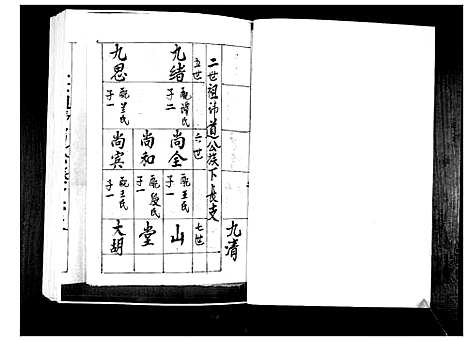 九清
二世祖讳道公族下长支
五世
六世
七世
九绪
配谭氏
子二
尚全
配王氏
子一
山
尚和
配段氏
子一
堂
九思
配兰氏
子一
尚宾
配王氏
子一
大胡